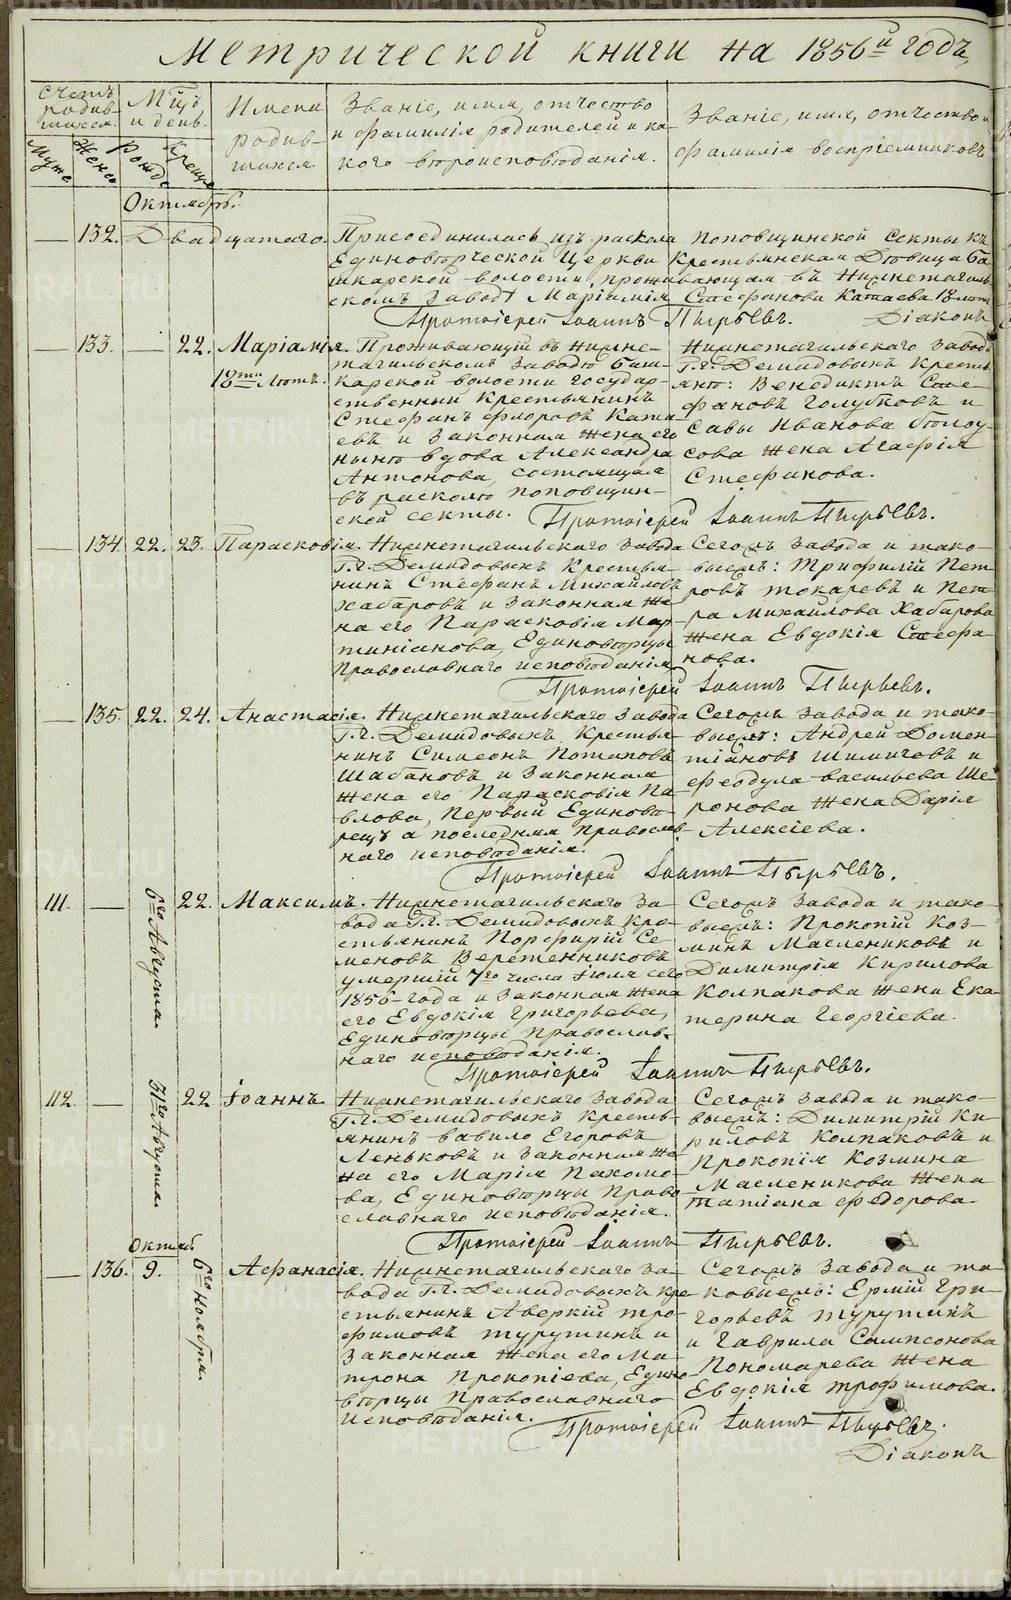 Метрической книги на 1856й годъ
Счетъ родившихся.
Мужс
Женс
М-цъ и день.
Рожд
Крещ
Имена родившихся
Званіе, имя, отчество и фамилія родителей и какого вѣроисповѣданія.
Званіе, имя, отчество и фамилія воспріемниковъ
Октябрь.
— 132. Двадцатаго. Присоединилась изъ раскола поповщинской секты къ
Единоверческой Церкви Крестьянская Девица
шкарской волости, проживающая въ Нижнетагиль
скомъ Заводѣ Маріамія Стефанова Катаева 18 лѣтъ
Протоіерей Іоаннъ Пырьевъ. Діаконъ
— 133. — 22. Маріамія.
18ти Лѣтъ.
Проживающій въ Нижне-
тагильскомъ Заводѣ Баш-
карской волости Государ-
ственный Крестьянинъ
Стефанъ Флоровъ Ката
евъ и Законная Жена его
нынѣ вдова Александра
Антонова, состоящая
въ расколѣ поповщин-
ской секты.
Нижнетагильскаго Завода
Г.г. Демидовыхъ Крестья
яне: Венедиктъ Сте-
фановъ Голубковъ и
Савы Иванова Бѣлоу-
сова Жена Агафія
Стефанова.
Протоіерей Іоаннъ Пырьевъ.
— 134 22. 23. Парасковія.
Нижнетагильскаго Завода
Г.г. Демидовыхъ Крестья-
нинъ Стефанъ Михайловъ
Хабаровъ и Законная Же
на его Парасковія Мар-
тиніанова, Единоверцы
Православнаго исповѣданія
Сегожъ Завода и тако-
выежъ: Трифилій Пет
ровъ Токаревъ и Пет-
ра Михайлова Хабарова
Жена Евдокія Стефа-
нова.
Протоіерей Іоаннъ Пырьевъ.
— 135. 22. 24. Анастасія.
Нижнетагильскаго Завода
Г.г. Демидовыхъ Крестья-
нинъ Симеонъ Потаповъ
Шабановъ и Законная
Жена его Парасковія Па-
влова, Первый Единове-
рецъ а последняя Православ-
наго исповѣданія.
Сегожъ Завода и тако-
выежъ: Андрей Домен-
тіановъ Шимичевъ и
Феодула Васильева Ше
ронова Жена Дарія
Алексіева.
Протоіерей Іоаннъ Пырьевъ.
111. — 6го Августа. 22. Максимъ.
Нижнетагильскаго За-
вода Г.г. Демидовыхъ Кре-
стьянинъ Порфирій Се-
меновъ Веретенниковъ
умершій 7го числа Іюля сего
1856-года и Законная Жена
его Евдокія Григорьева,
Единоверцы Православ-
наго исповѣданія.
Сегожъ Завода и тако-
выежъ: Прокопій Коз-
минъ Маслениковъ и
Димитрія Кирилова
Колпакова Жена Ека-
терина Георгіева.
Протоіерей Іоаннъ Пырьевъ.
112. — 31го Августа. 22 Іоаннъ.
Нижнетагильскаго Завода
Г.г. Демидовыхъ Кресть-
янинъ Вавило Егоровъ
Леньковъ и Законная Же
на его Марія Пахомо-
ва, Единоверцы Право
славнаго исповѣданія.
Сегожъ Завода и тако-
выежъ: Димитрій Ки-
риловъ Колпаковъ и
Прокопія Козмина
Масленикова Жена
Татіана Федорова.
Протоіерей Іоаннъ Пырьевъ.
Октяб.
— 136. 9. 6го Ноября. Афанасія.
Нижнетагильскаго За-
вода Г.г. Демидовыхъ Кре
стьянинъ Аверкій Тро-
фимовъ Турутинъ и
Законная Жена его Ма-
трона Прокопіева, Едино-
верцы Православнаго
исповѣданія.
Сегожъ Завода и та-
ковыежъ: Ермій Гри-
горьевъ Турутинъ
и Гаврила Сампсонова
Пономарева Жена
Евдокія Трофимова.
Протоіерей Іоаннъ Пырьевъ.
Діаконъ
METRIKI.GASO-URAL.RU